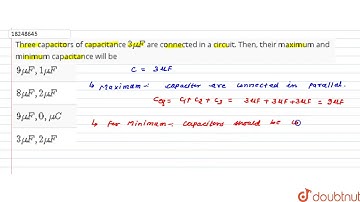 18248645
Three capacitors of capacitance 3μF are connected in a circuit. Then, their maximum and
minimum capacitance will be
9μF, 1μF
8μF, 2μF
9μF, 0, μC
3μF, 2μF
C = 3μF
↳ Maximum:- capacitor are connected in parallel.
Ceq = C1 + C2 + C3 = 3μF + 3μF + 3μF = 9μF
↳ for Minimum:- capacitors should be
doubtnut